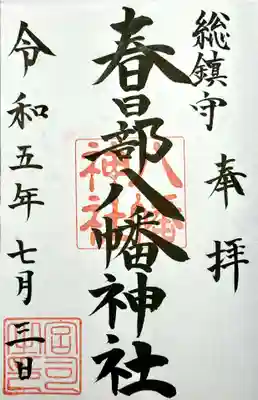 奉拝
総鎮守
春日部八幡神社
八幡神社
令和五年七月三日